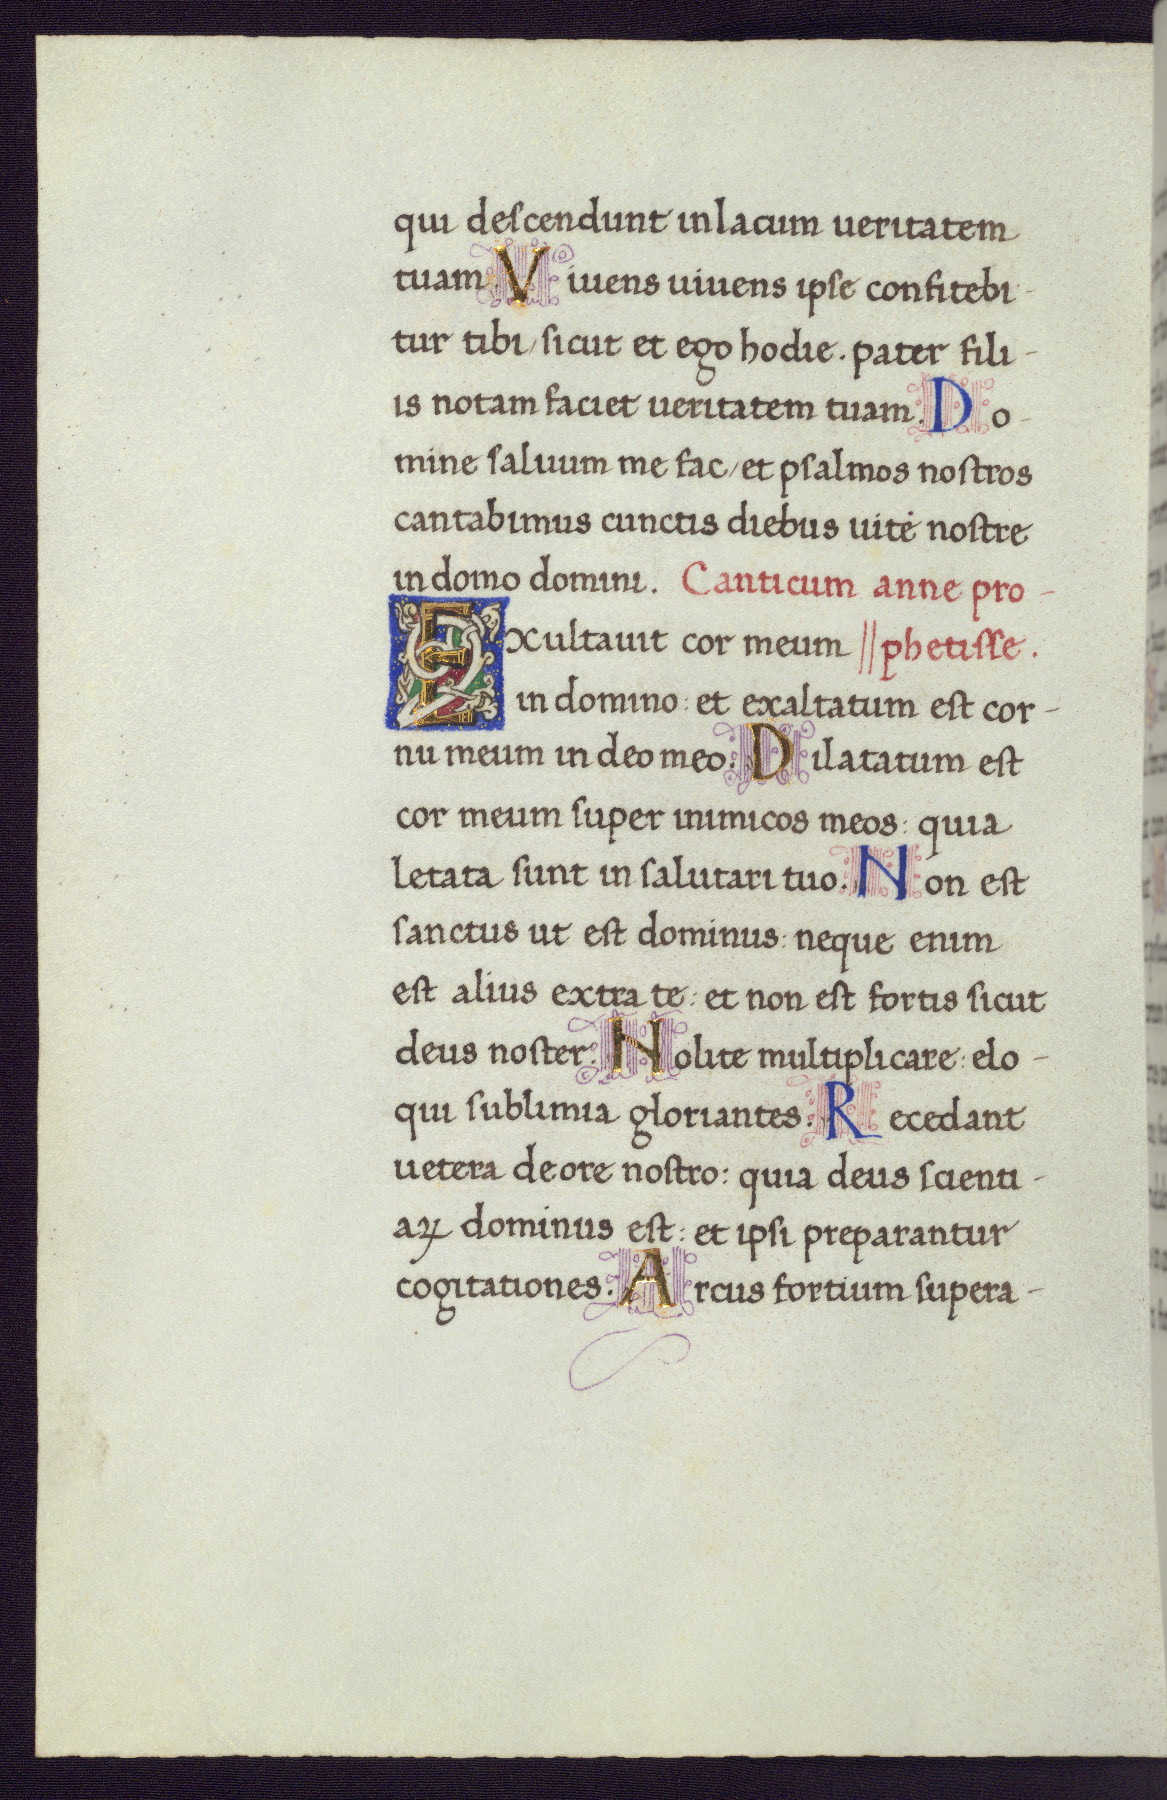 qui descendunt in lacum ueritatem
tuam. Viuens uiuens ipse confitebi-
tur tibi/ sicut et ego hodie. pater fili-
is notam faciet ueritatem tuam. Do-
mine saluum me fac/ et psalmos nostros
cantabimus cunctis diebus uite nostre
in domo domini. Canticum anne pro-
Exultauit cor meum // phetisse.
in domino: et exaltatum est cor-
nu meum in deo meo. Dilatatum est
cor meum super inimicos meos: quia
letata sunt in salutari tuo. Non est
sanctus ut est dominus: neque enim
est alius extra te: et non est fortis sicut
deus noster. Nolite multiplicare: elo-
qui sublimia gloriantes. Recedant
uetera de ore nostro: quia deus scienti-
aꝝ dominus est: et ipsi preparantur
cogitationes. Arcus fortium supera-